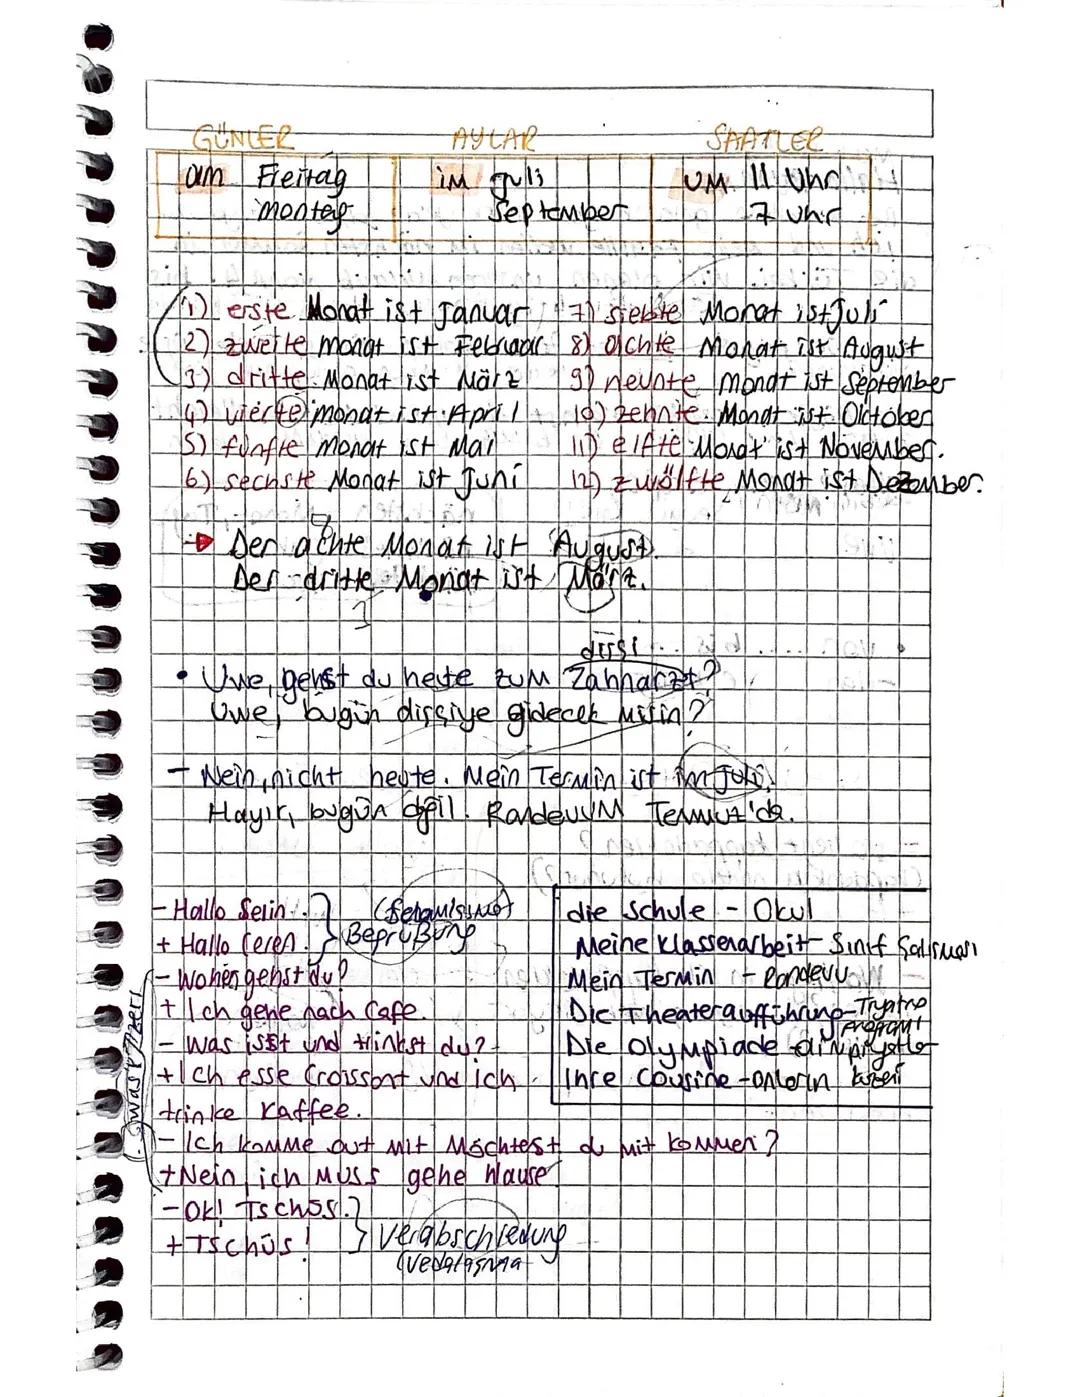 GÜNLER
AYLAR
SAATLER
am Freitag
im Juli
um 11 Uhr
Montag
September
7 Uhr
1) erste Monat ist Januar
2) zweite Monat ist Februar
3) dritte Monat ist März
4) vierte monat ist April
5) fünfte Monat ist Mai
6) sechste Monat ist Juni
7) siebte Monat ist Juli
8) achte Monat ist August
9) neunte Monat ist September
10) zehnte Monat ist Oktober
11) elfte Monat ist November.
12) zwölfte Monat ist Dezember.
Der achte Monat ist August.
Der dritte Monat ist März.
dişçi
• Uwe, gehst du heute zum Zahnarzt?
Uwe, bugün dişçiye gidecek misin?
- Nein, nicht heute. Mein Termin ist im Juli.
Hayır, bugün değil. Randevum Temmuz'da.
- Hallo Selin.
+ Hallo Ceren.
(Selamlaşma)
Begrüßung
- Wohin gehst du?
+ Ich gehe nach Cafe.
- Was isst und trinkst du?
+ Ich esse Croissant und ich
trinke Kaffee.
- Ich komme out mit Möchtest du mit kommen?
+ Nein, ich muss gehe Hause
- OK! Tschüs.
+ Tschüs!
Verabschiedung
(vedalaşma
die Schule - Okul
Meine Klassenarbeit - Sınıf Çalışması
Mein Termin - Randevu
Die Theateraufführung - Tiyatro
programı
Die Olympiade - olimpiyatlar
Ihre Cousine - onların kuzeni